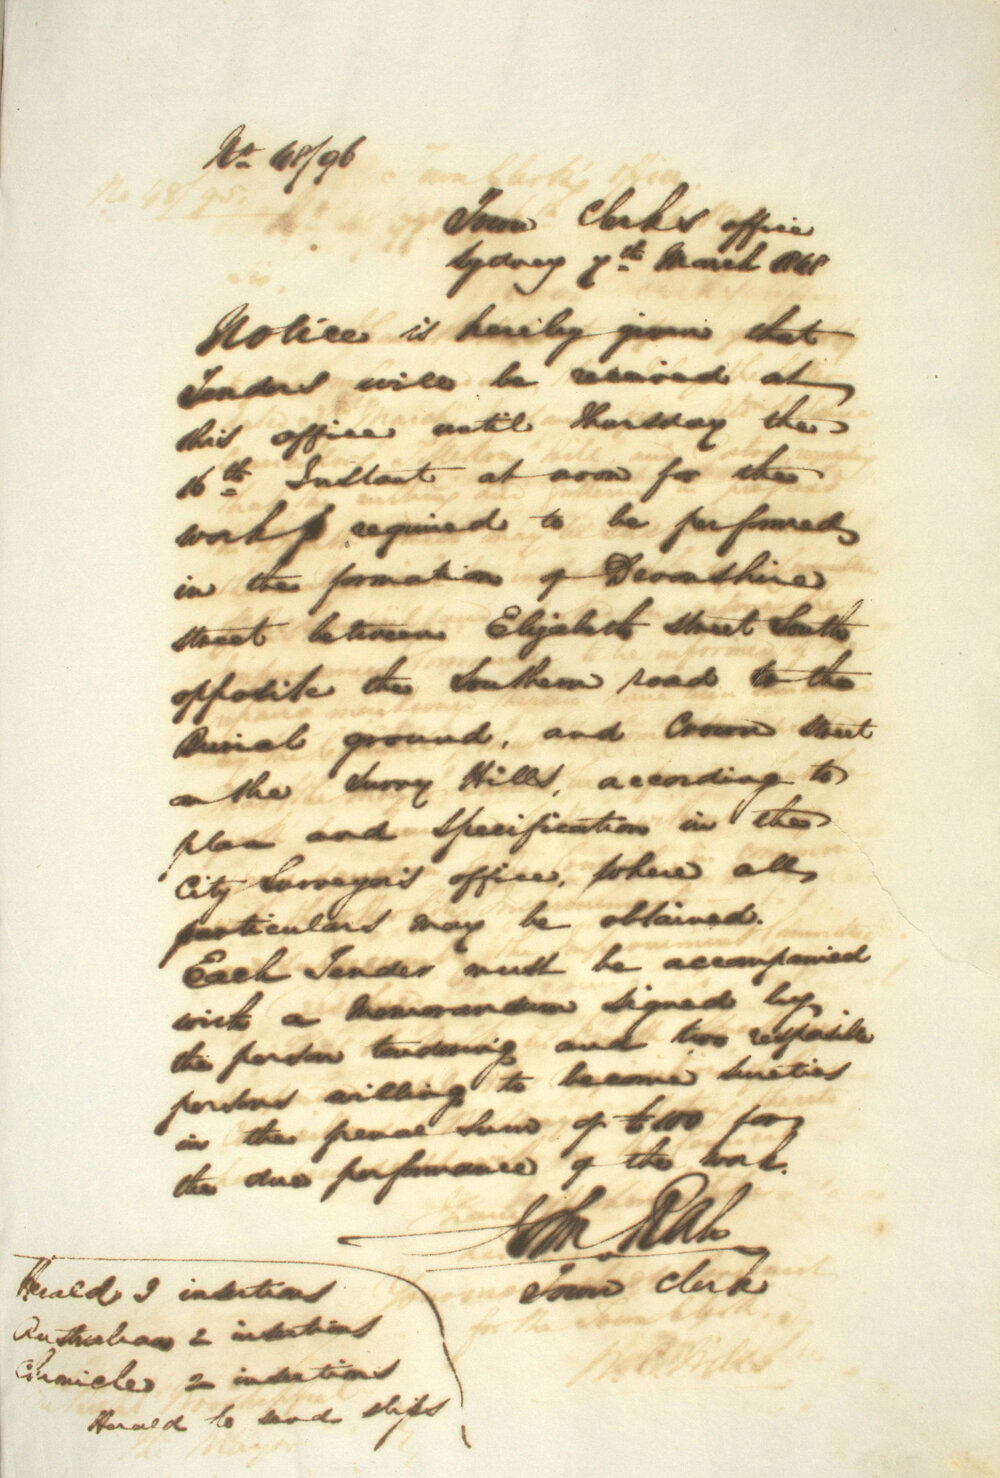 No 48/96
Town Clerk's office
Sydney 7th March 1848
Notice is hereby given that
Tenders will be received at
this office until Thursday the
16th Instant at noon for the
work required to be performed
in the formation of Devonshire
street between Elizabeth street South
opposite the Southern road to the
Burial ground, and Crown street
on the Surry Hills, according to
plan and specification in the
City Surveyor's office, where all
particulars may be obtained.
Each Tender must be accompanied
with a Memorandum signed by
the person tendering and two resposible
persons willing to become sureties
in the penal sum of £100 for
the due performance of the work.
Town Clerk
Herald 3 insertions
Australian 2 insertions
Chronicle 2 insertions
Herald to send slips